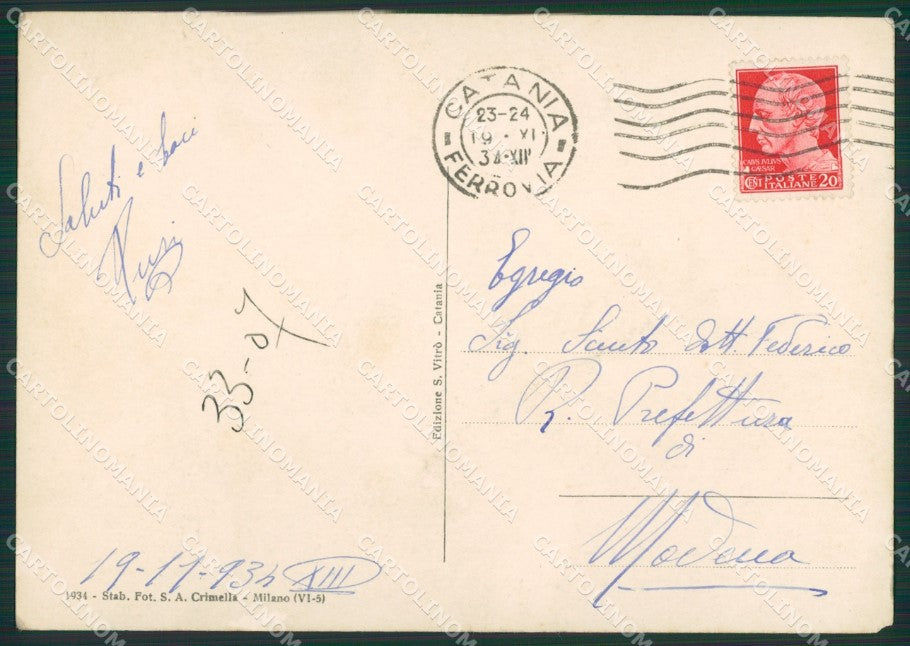 CATANIA
23-24
19·XI
34·XII
FERROVIA
CAIVS IVLIVS
CAESAR
CENT POSTE 20
ITALIANE
Saluti e baci
33-07
Edizione S. Vitrò - Catania
Egregio
Sig. Santo Dott. Federico
R. Prefettura
di
Modena
19-11-934 XIII
1934 - Stab. Fot. S. A. Crimella - Milano (VI-5)
CARTOLINOMANIA